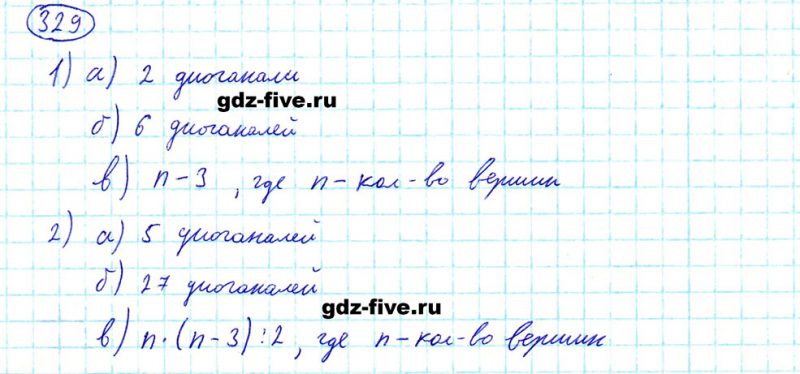 329
1) а) 2 диоганали
gdz-five.ru
б) 6 диоганалей
в) n - 3 , где n - кол-во вершин
2) а) 5 диоганалей
б) 27 диоганалей
gdz-five.ru
в) n · (n - 3) : 2 , где n - кол-во вершин